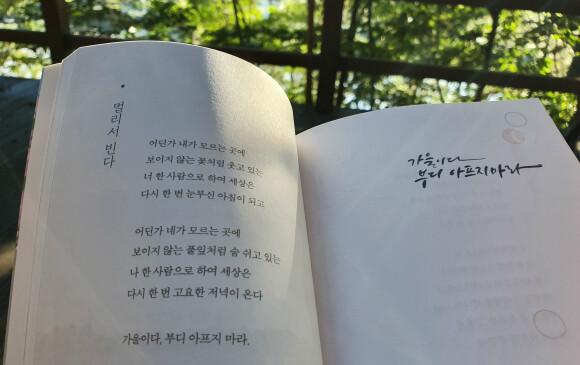 멀리서 빈다
어딘가 내가 모르는 곳에
보이지 않는 꽃처럼 웃고 있는
너 한 사람으로 하여 세상은
다시 한 번 눈부신 아침이 되고
어딘가 네가 모르는 곳에
보이지 않는 풀잎처럼 숨 쉬고 있는
나 한 사람으로 하여 세상은
다시 한 번 고요한 저녁이 온다
가을이다, 부디 아프지 마라.
가을이다
부디 아프지마라